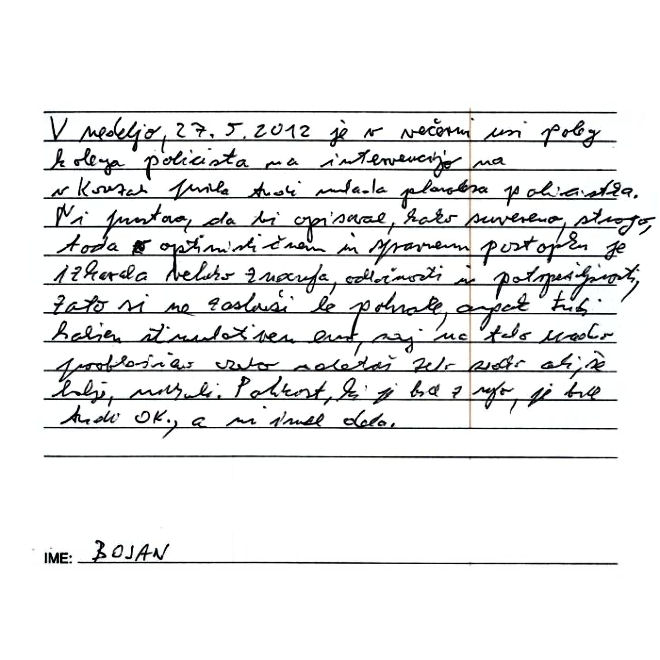 V nedeljo, 27. 5. 2012 je v večerni uri poleg
kolega policista na intervencijo na
v tudi mlada plavolasa policistka.
Ni prostora, da bi opisoval, kako suvereno, strogo,
toda optimističnem in spravnem postopku je
izkazala veliko znanja, odločnosti in potrpežljivosti,
zato si ne zasluži le pohvale, ampak tudi
kakšen stimulativen euro, saj na tako mlado
pooblaščeno osebo naletiš zelo redko ali, še
bolje, nikoli. Policist, ki je bil z njo, je bil
tudi OK., a ni imel dela.
IME: BOJAN